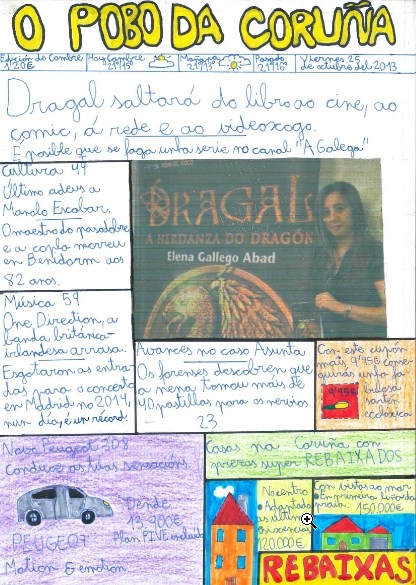 O POBO DA CORUÑA
Edición de Cambre
1'20€
Hoy Cambre
21º/15º
Mañana
21º/13º
Pasado
21º/16º
Viernes 25
de outubro del 2013
Dragal saltará do libro ao cine, ao
comic, á rede e ao videoxogo.
E posible que se faga unha serie no canal "A Galega"
Cultura 49
Último adeus a
Manolo Escobar.
O maestro do pasodobre
e a copla morreu
en Benidorm aos
82 anos.
DRAGAL
A HERDANZA DO DRAGÓN
Elena Gallego Abad
Música 59
One Direction, a
banda británica-
irlandesa arrasa.
Esgotaron as entra
das para o concerto
en Madrid no 2014,
nun día, é un récord.
Avances no caso Asunta
Os forenses descobren que
a nena tomou máis de
40 pastillas para os nervios
23
Con este cupón
máis 9'95€ conse-
guirás unha fa
bulosa
sartén
ecolóxica
9'95€
Novo Peugeot 308
Conduce as túas sensacións
Dende
13.900€
Plan PIVE incluido
PEUGEOT
Motion & emotion
Casas na Coruña con
prezos super REBAIXADOS
No centro
120.000€
Con vistas ao mar
En primeira liña da
praia.
150.000€
REBAIXAS